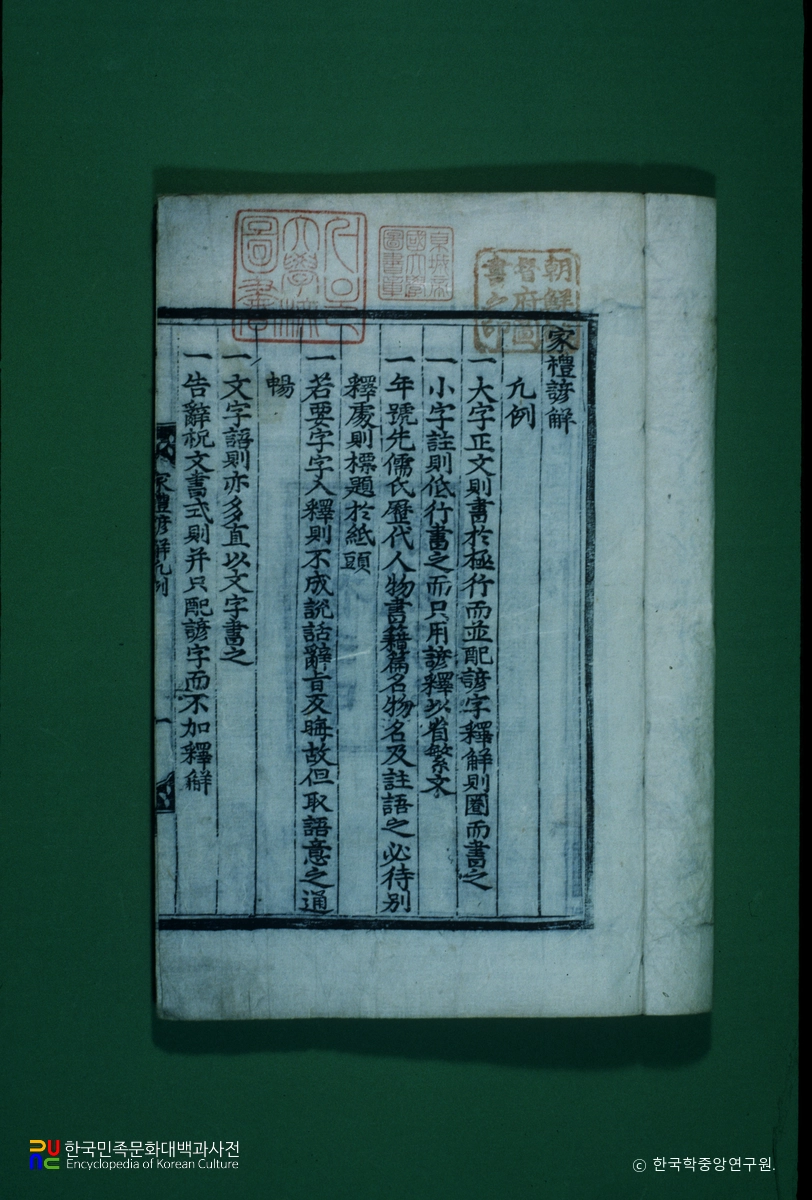 家禮諺解
凡例
一大字正文則書於極行而並配諺字釋解則圈而書之
一小字註則低行書之而只用諺釋以省繁文
一年號先儒氏歷代人物書籍篇名物名及註語之必待別
釋處則標題於紙頭
一若要字字入釋則不成說話辭旨反晦故但取語意之通
暢
一文字語則亦多直以文字書之
一告辭祝文書式則并只配諺字而不加釋解
家禮諺解凡例
一
朝鮮總督府圖書之印
京城帝國大學圖書章
大學校圖書
한국민족문화대백과사전
Encyclopedia of Korean Culture
© 한국학중앙연구원.